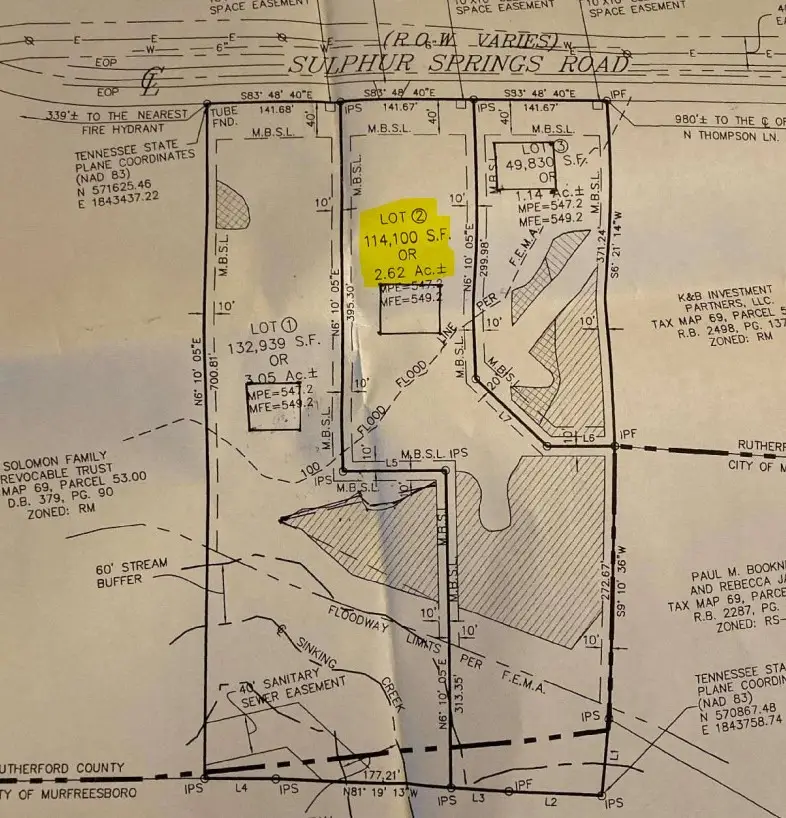 SPACE EASEMENT
10'X10'
SPACE EASEMENT
10'X10'
SPACE EASEMENT
E
E
E
E
E
E
W
6"
W
W
(R.O.W. VARIES)
6"
SULPHUR SPRINGS ROAD
EOP
EOP
CL
S83° 48' 40"E
S83° 48' 40"E
S83° 48' 40"E
141.68'
IPS
141.67'
IPS
141.67'
IPF
339'± TO THE NEAREST
FIRE HYDRANT
TUBE
FND.
980'± TO THE CL OF
N THOMPSON LN.
M.B.S.L.
40'
M.B.S.L.
40'
M.B.S.L.
40'
TENNESSEE STATE
PLANE COORDINATES
(NAD 83)
N 571625.46
E 1843437.22
LOT 3
49,830 S.F.
OR
1.14 Ac.±
MPE=547.2
MFE=549.2
M.B.S.L.
M.B.S.L.
M.B.S.L.
M.B.S.L.
10'
10'
LOT 2
114,100 S.F.
OR
2.62 Ac.±
MPE=547.2
MFE=549.2
N6° 10' 05"E
299.98'
F.E.M.A.
PER
S6° 21' 14"W
371.24'
K&B INVESTMENT
PARTNERS, LLC.
TAX MAP 69, PARCEL
R.B. 2498, PG. 137
ZONED: RM
N6° 10' 05"E
395.30'
10'
10'
10'
LOT 1
132,939 S.F.
OR
3.05 Ac.±
MPE=547.2
MFE=549.2
N6° 10' 05"E
700.81'
M.B.S.L.
M.B.S.L.
20'
M.B.S.
L7
10'
M.B.S.L.
FLOOD
FLOOD
100
10'
L6
IPF
RUTHERF
CITY OF M
SOLOMON FAMILY
REVOCABLE TRUST
MAP 69, PARCEL 53.00
D.B. 379, PG. 90
ZONED: RM
M.B.S.L.
IPS
10'
L5
IPS
M.B.S.L.
10'
M.B.S.L.
M.B.S.L.
60' STREAM
BUFFER
272.67'
S9° 10' 36"W
PAUL M. BOOKN
AND REBECCA JA
TAX MAP 69, PARCE
R.B. 2287, PG.
ZONED: RS-
10'
10'
10'
FLOODWAY
LIMITS
PER
F.E.M.A.
CL
SINKING
CREEK
40' SANITARY
SEWER EASEMENT
N6° 10' 05"E
313.35'
TENNESSEE STA
PLANE COORDIN
(NAD 83)
N 570867.48
E 1843758.74
IPS
L1
UTHERFORD COUNTY
TY OF MURFREESBORO
IPS
L4
IPS
177.21'
N81° 19' 13"W
IPS
L3
IPF
L2
IPS